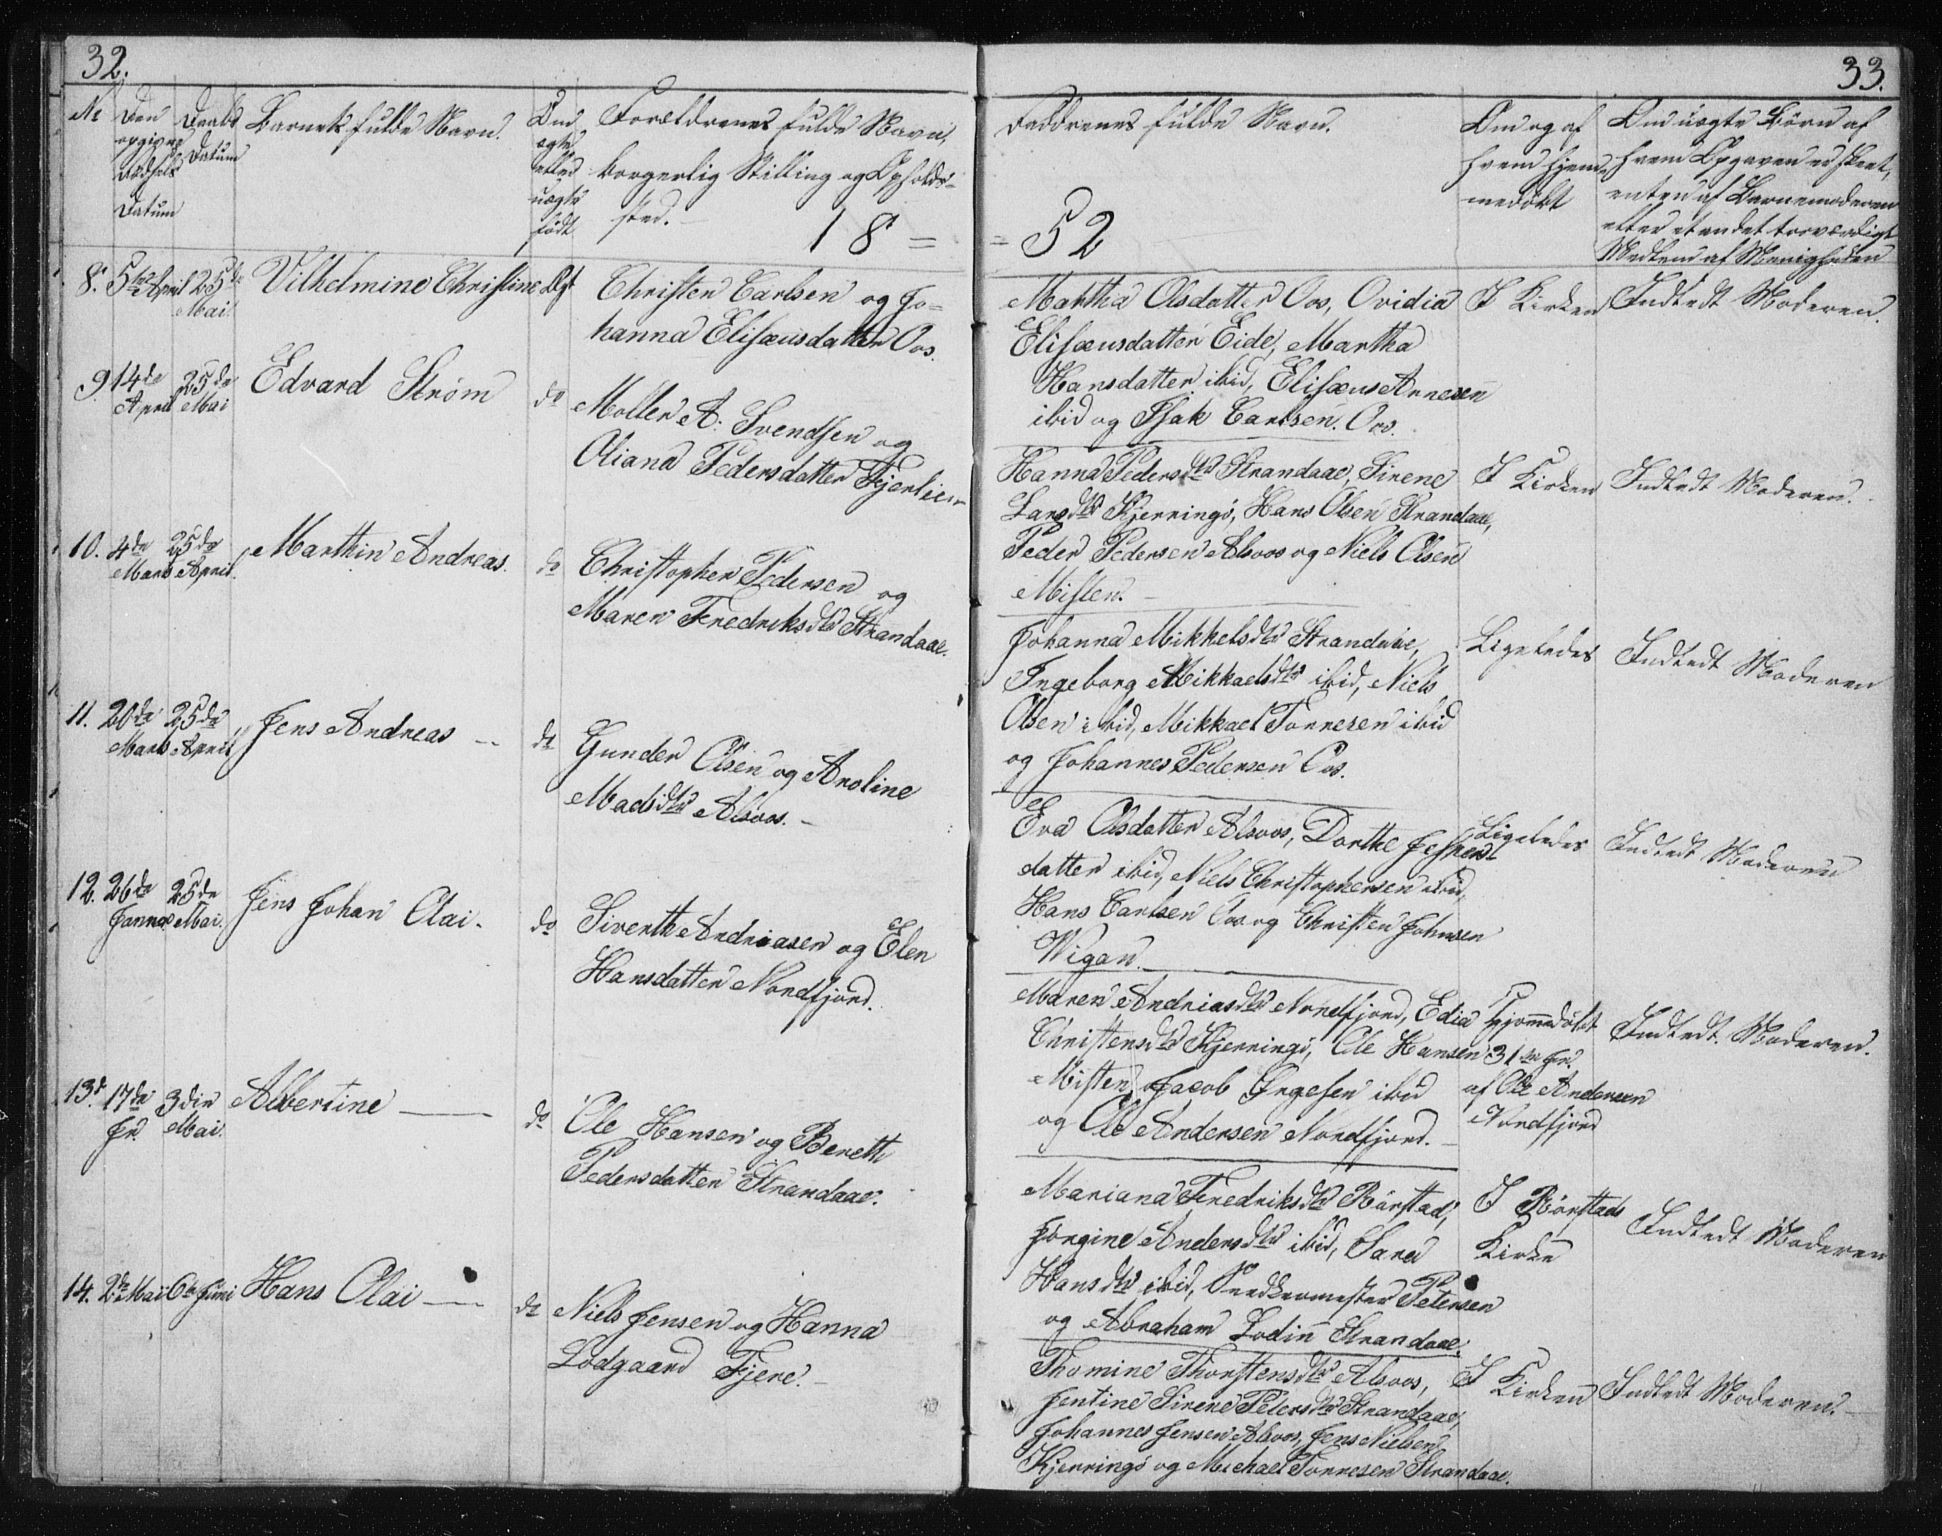 32.
No Den opgivne Fødsels Datum
Daabs Datum
Barnets fulde Navn.
Om ægte eller uægte født
Forældrenes fulde Navn,
borgerlig Stilling og Opholds-
sted. -
18 =
8. 5te April 25de Mai Vilhelmine Christine Ægt
Christen Carlsen og Jo-
hanna Elisæusdatter Oos.
9. 14de April 25de Mai Edvard Strøm do
Moller A. Svendsen og
Oliana Pedersdatter
10. 4de Marts 25de April Marthin Andreas. do
Christopher Pedersen og
Maren Fredriksdtr Strandaae.
11. 20de Marts 25de April Jens Andreas - do
Gunder Olsen og Anoline
Madsdtr Alsoos. -
12. 26de Januar 25de Mai. Jens Johan Olai. do
Siverth Andreasen og Elen
Hansdatter Nordfjord.
13. 17de Jn. 3die Mai. Albertine - do
Ole Hansen og Berethe
Pedersdatter Strandaae.
14. 2de Mai 6te Juni Hans Olai - do
Niels Jensen og Hanna
Lodgaard Fjere. -
33.
Faddernes fulde Navn.
= 52
Om og af
hvem hjem-
medøbt
Om uægte Børn af
hvem Opgaven er skeet,
enten af Barnemoderen
eller et andet troværdigt
Medlem af Menigheden
Martha Olsdatter Oos, Ovidia
Elisæusdatter Eide, Martha
Hansdatter ibid, Elisæus Arnesen
ibid og Isak Carlsen. Oos.
I Kirken
Indledt Moderen.
Hanna Pedersdtr Strandaae, Sirene
Larsdtr Kjerringø, Hans Olsen Strandaae,
Peder Pedersen Alsoos og Niels Olsen
Misten. -
I Kirken
Indledt Moderen.
Johanna Mikkelsdtr Strandaae,
Ingeborg Mikkaelsdtr ibid, Niels
Olsen ibid, Mikkael Tonnesen ibid
og Johannes Pedersen Oos.
Ligeledes
Indledt Moderen
Eva Olsdatter Alsoos, Dorthe Jespers-
datter ibid, Niels Christophersen ibid,
Hans Carlsen Oos og Christen Johnsen
Wigan.
Ligeledes
Indledt Moderen
Maren Andriasdtr Nordfjord, Edia
Christensdtr Kjerringø, Ole Hansen
Misten, Jacob Ingesen ibid
og Ole Andersen Nordfjord. -
Hjemmedøbt
31te Jn.
af Ole Andersen
Nordfjord
Indledt Moderen.
Mariana Fredriksdtr Rørstad,
Jørgine Andersdtr ibid, Sara
Hansdtr ibid, Petersen
og Abraham Lodin Strandaae.
I Rørstads
Kirke
Indledt Moderen
Thomine Thorstensdtr Alsoos,
Jentine Sirene Petersdtr Strandaae,
Johannes Jensen Alsoos, Jens Nielsen
Kjerringø og Michael Tonnesen Strandaae.
I Kirken
Indledt Moderen.